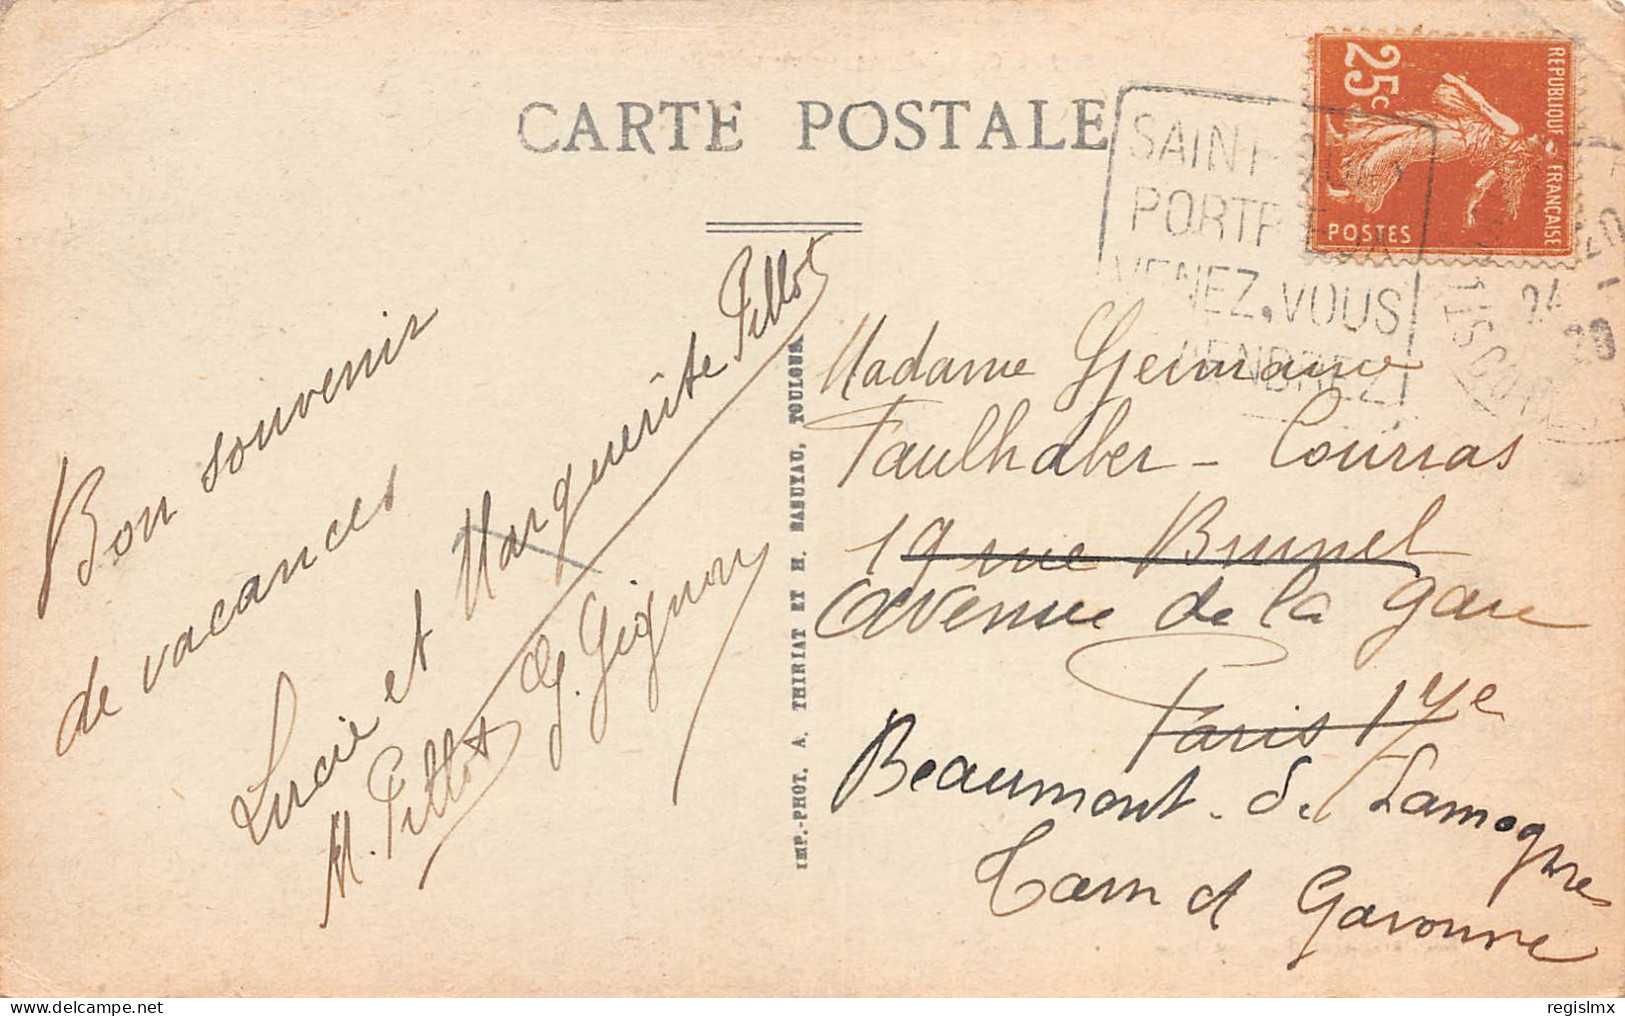 CARTE POSTALE
RÉPUBLIQUE FRANÇAISE
25c
POSTES
PORT
VENEZ, VOUS
Bon souvenir
de vacances
Lucie et Marguerite Pillot
M. Pillot G. Gignoux
IMP.-PHOT. A. THIRIAT ET H. BASUYAU, TOULOUSE
Madame Germaine
Faulhaber - Courras
19 rue Brunel
avenue de la gare
Paris 17e
Beaumont. de Lamogne
Tarn et Garonne
regislmx